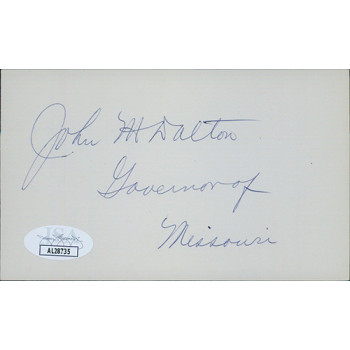 John M Dalton
Governor of
Missouri
JSA
AL28735